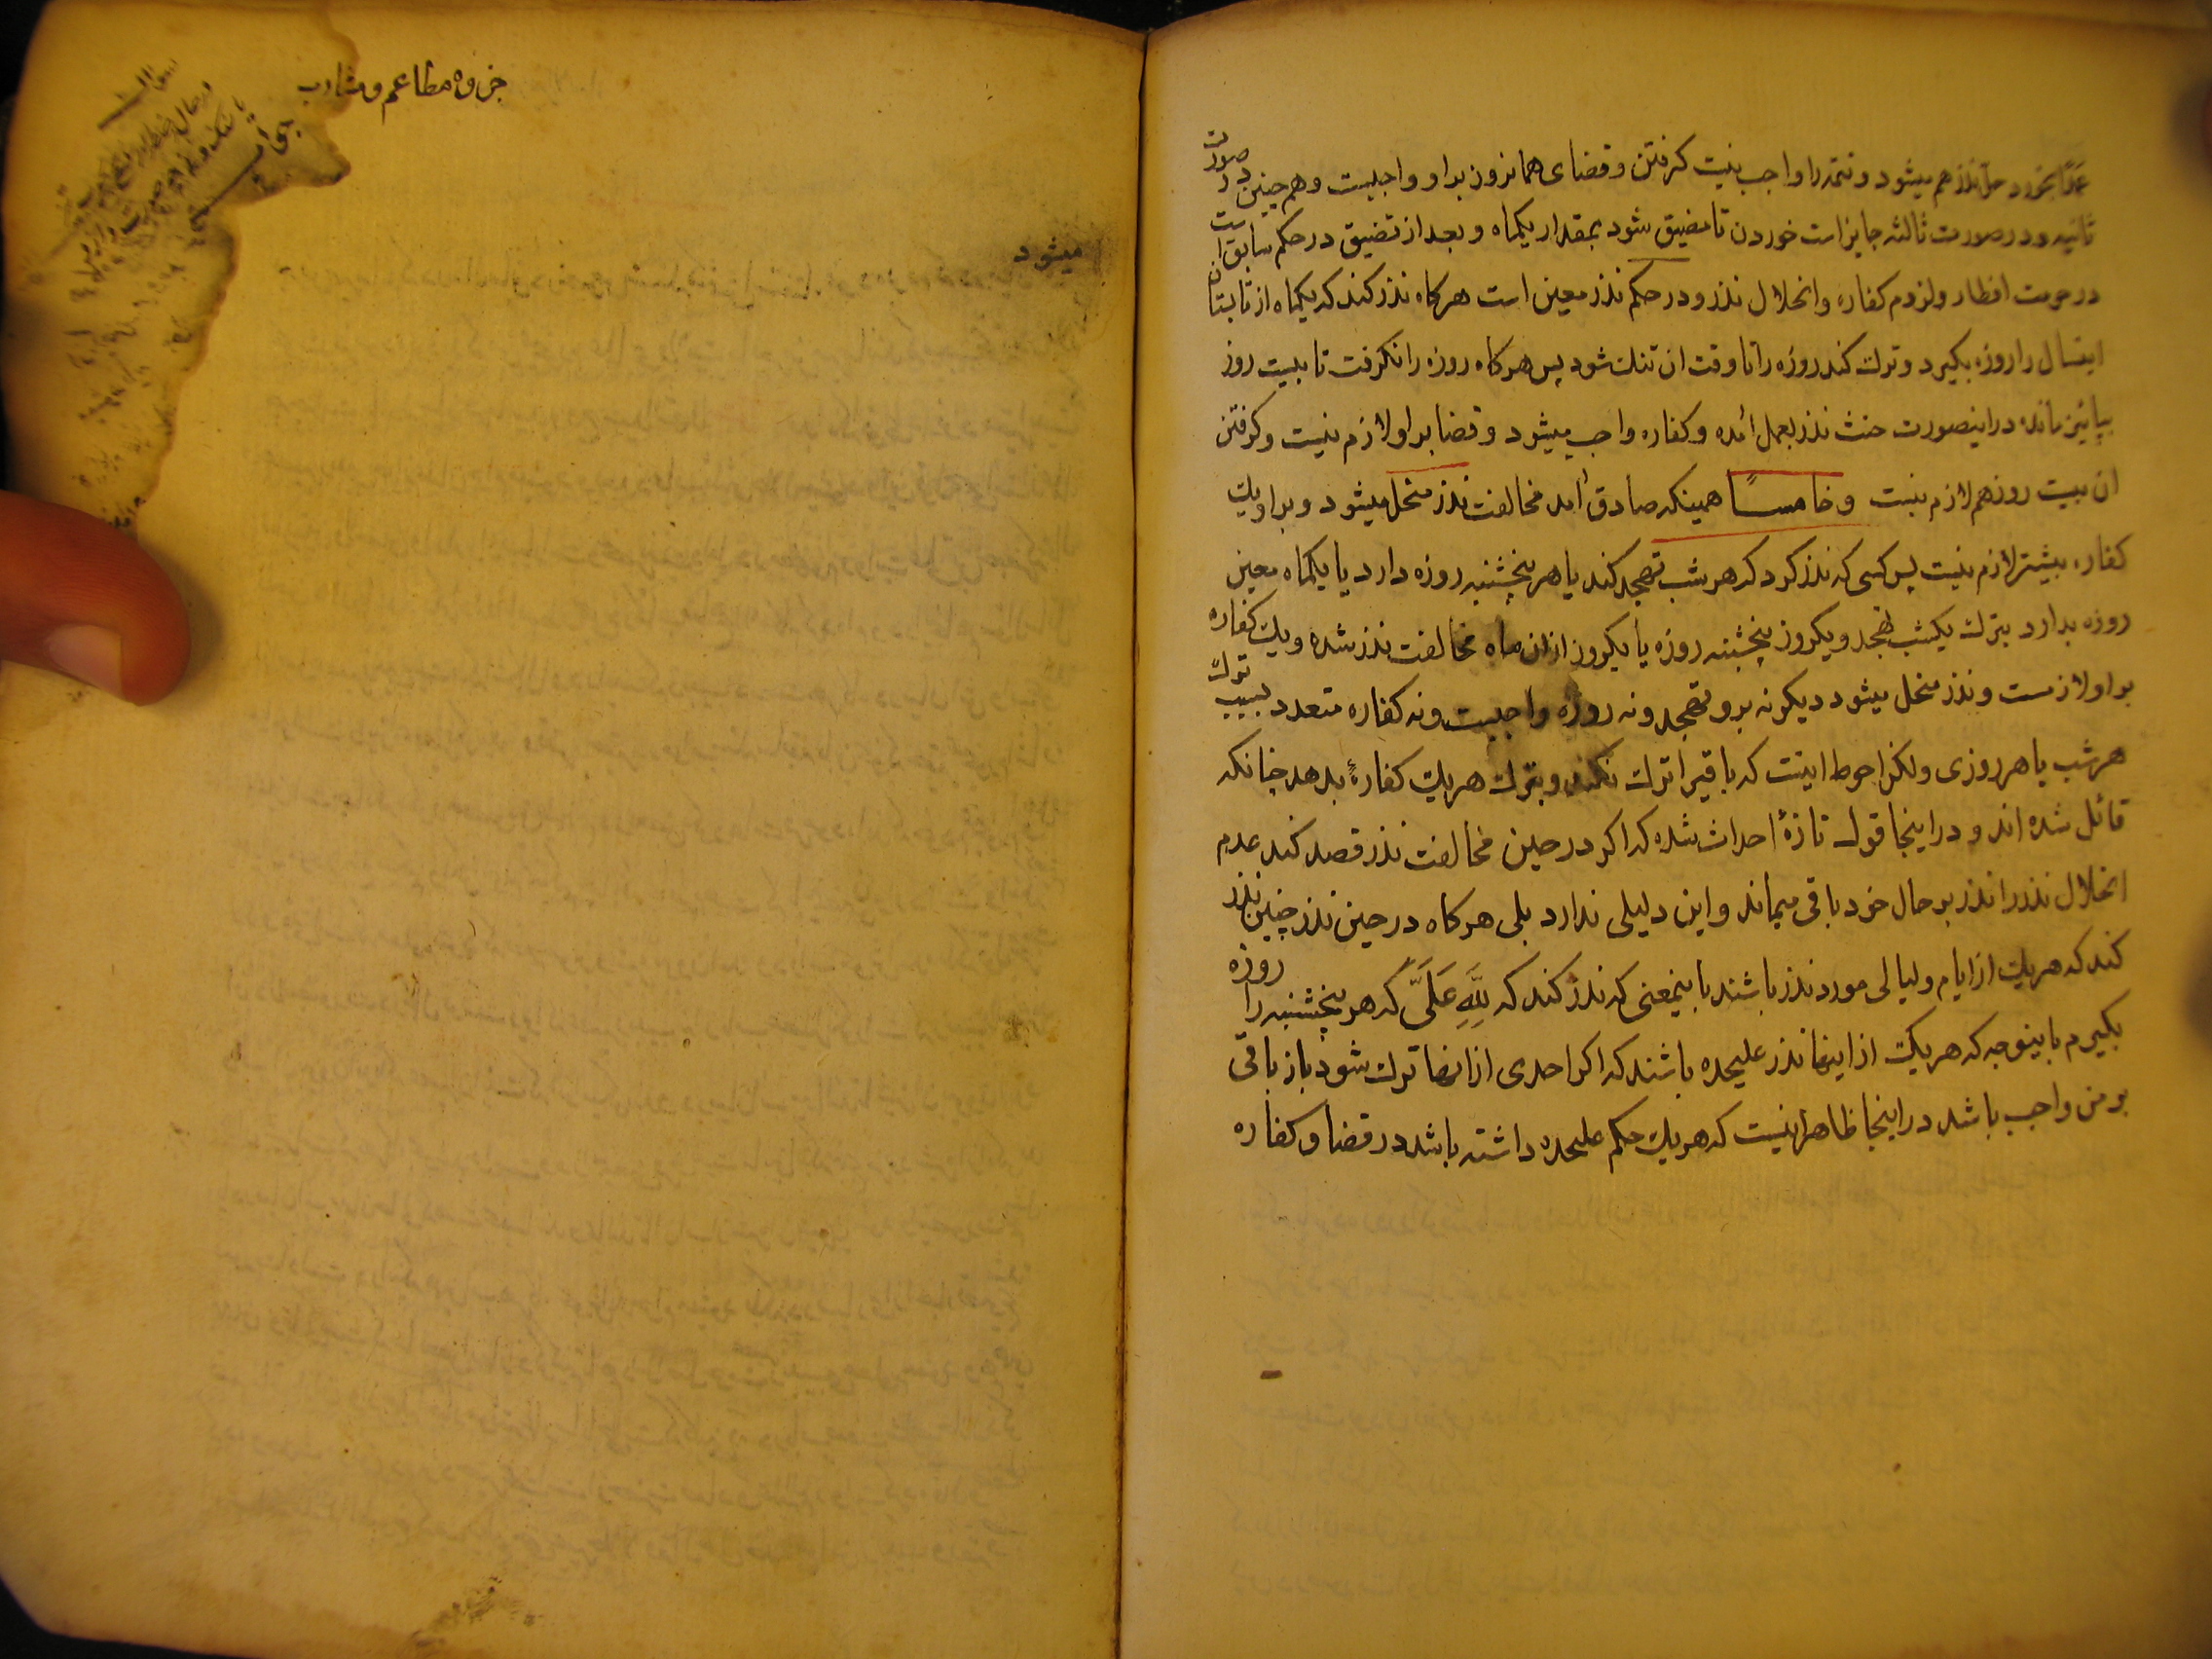 عمدًا بخورد حلّ نذر هم میشود و تتمه را واجب نیست کرفتن و قضای همانروز براو واجبست و همچنین در صورت
ثانیه و در صورت ثالثه جایز است خوردن تا مضیق شود بمقدار یکماه و بعد از تضیق در حکم سابق است
در حرمت افطار و لزوم کفاره و انحلال نذر و در حکم نذر معین است هرکاه نذر کند که یکماه از تابستان
اینسال را روزه بکیرد و ترک کند روزه را تا وقت ان تنک شود پس هرکاه روزه را نکرفت تا بیست روز
بپائیز مانده دراینصورت حنث نذر بعمل امده و کفاره واجب میشود و قضا براو لازم نیست و کرفتن
ان بیست روز هم لازم نیست و خامسًا همینکه صادق امد مخالفت نذر منحل میشود و براو یک
کفاره بیشتر لازم نیست پس کسی که نذر کرد که هر شب تهجد کند یا هر پنجشنبه روزه دارد یا یکماه معین
روزه بدارد بترک یکشب تهجد و یکروز پنجشنبه روزه یا یکروز از ان ماه مخالفت نذر شده و یک کفاره
براو لازمست و نذر منحل میشود دیکر نه برو تهجد و نه روزه واجبست و نه کفاره متعدد بسبب ترک
هر شب یا هر روزی ولکن احوط اینست که باقیرا ترک نکند و بترک هر یک کفارهٔ بدهد چنانکه
قائل شده اند و در اینجا قول تازهٔ احداث شده که اکر در حین مخالفت نذر قصد کند عدم
انحلال نذر را نذر بر حال خود باقی میماند و این دلیلی ندارد بلی هرکاه در حین نذر چنین نذر
کند که هر یک از ایام و لیالی مورد نذر باشند باینمعنی که نذر کند که لِلّهِ عَلَیَّ که هر پنجشنبه را روزه
بکیرم باینوجه که هر یک از اینها نذر علیحده باشند که اکر احدی از انها ترک شود باز باقی
بر من واجب باشد در اینجا ظاهر اینست که هر یک حکم علیحده داشته باشد در قضا و کفاره
میشود
جزوه مطاعم و مشارب
سؤال
جواب